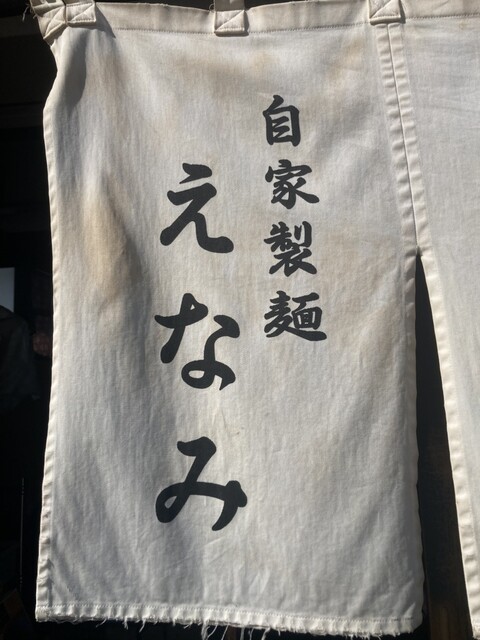 自家製麺
えなみ